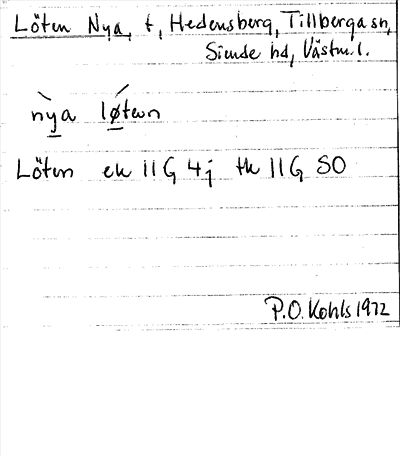 Löten Nya, t, Hedensberg, Tillberga sn,
Siende hd, Västm. l.
nỳa løtən
Löten ek 11G 4j tk 11G SO
P.O. Kohls 1972